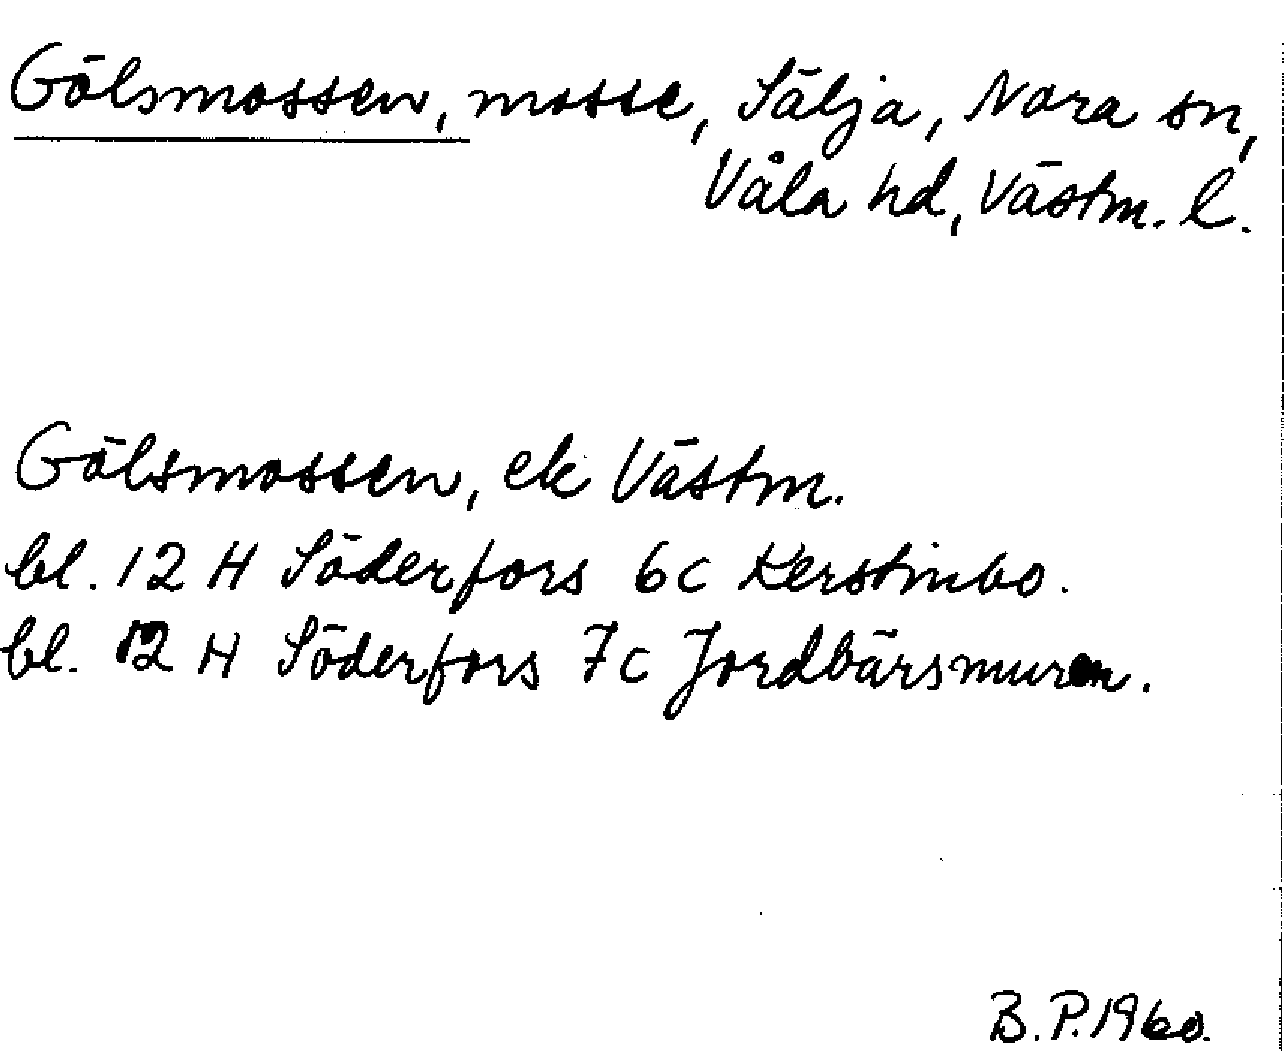 Gälsmossen, mosse, Sälja, Nora sn,
Våla hd, Västm. l.
Gälsmossen, ek Västm.
bl. 12 H Söderfors 6c Kerstinbo.
bl. 12 H Söderfors 7c Jordbärsmuren.
B.P. 1960.